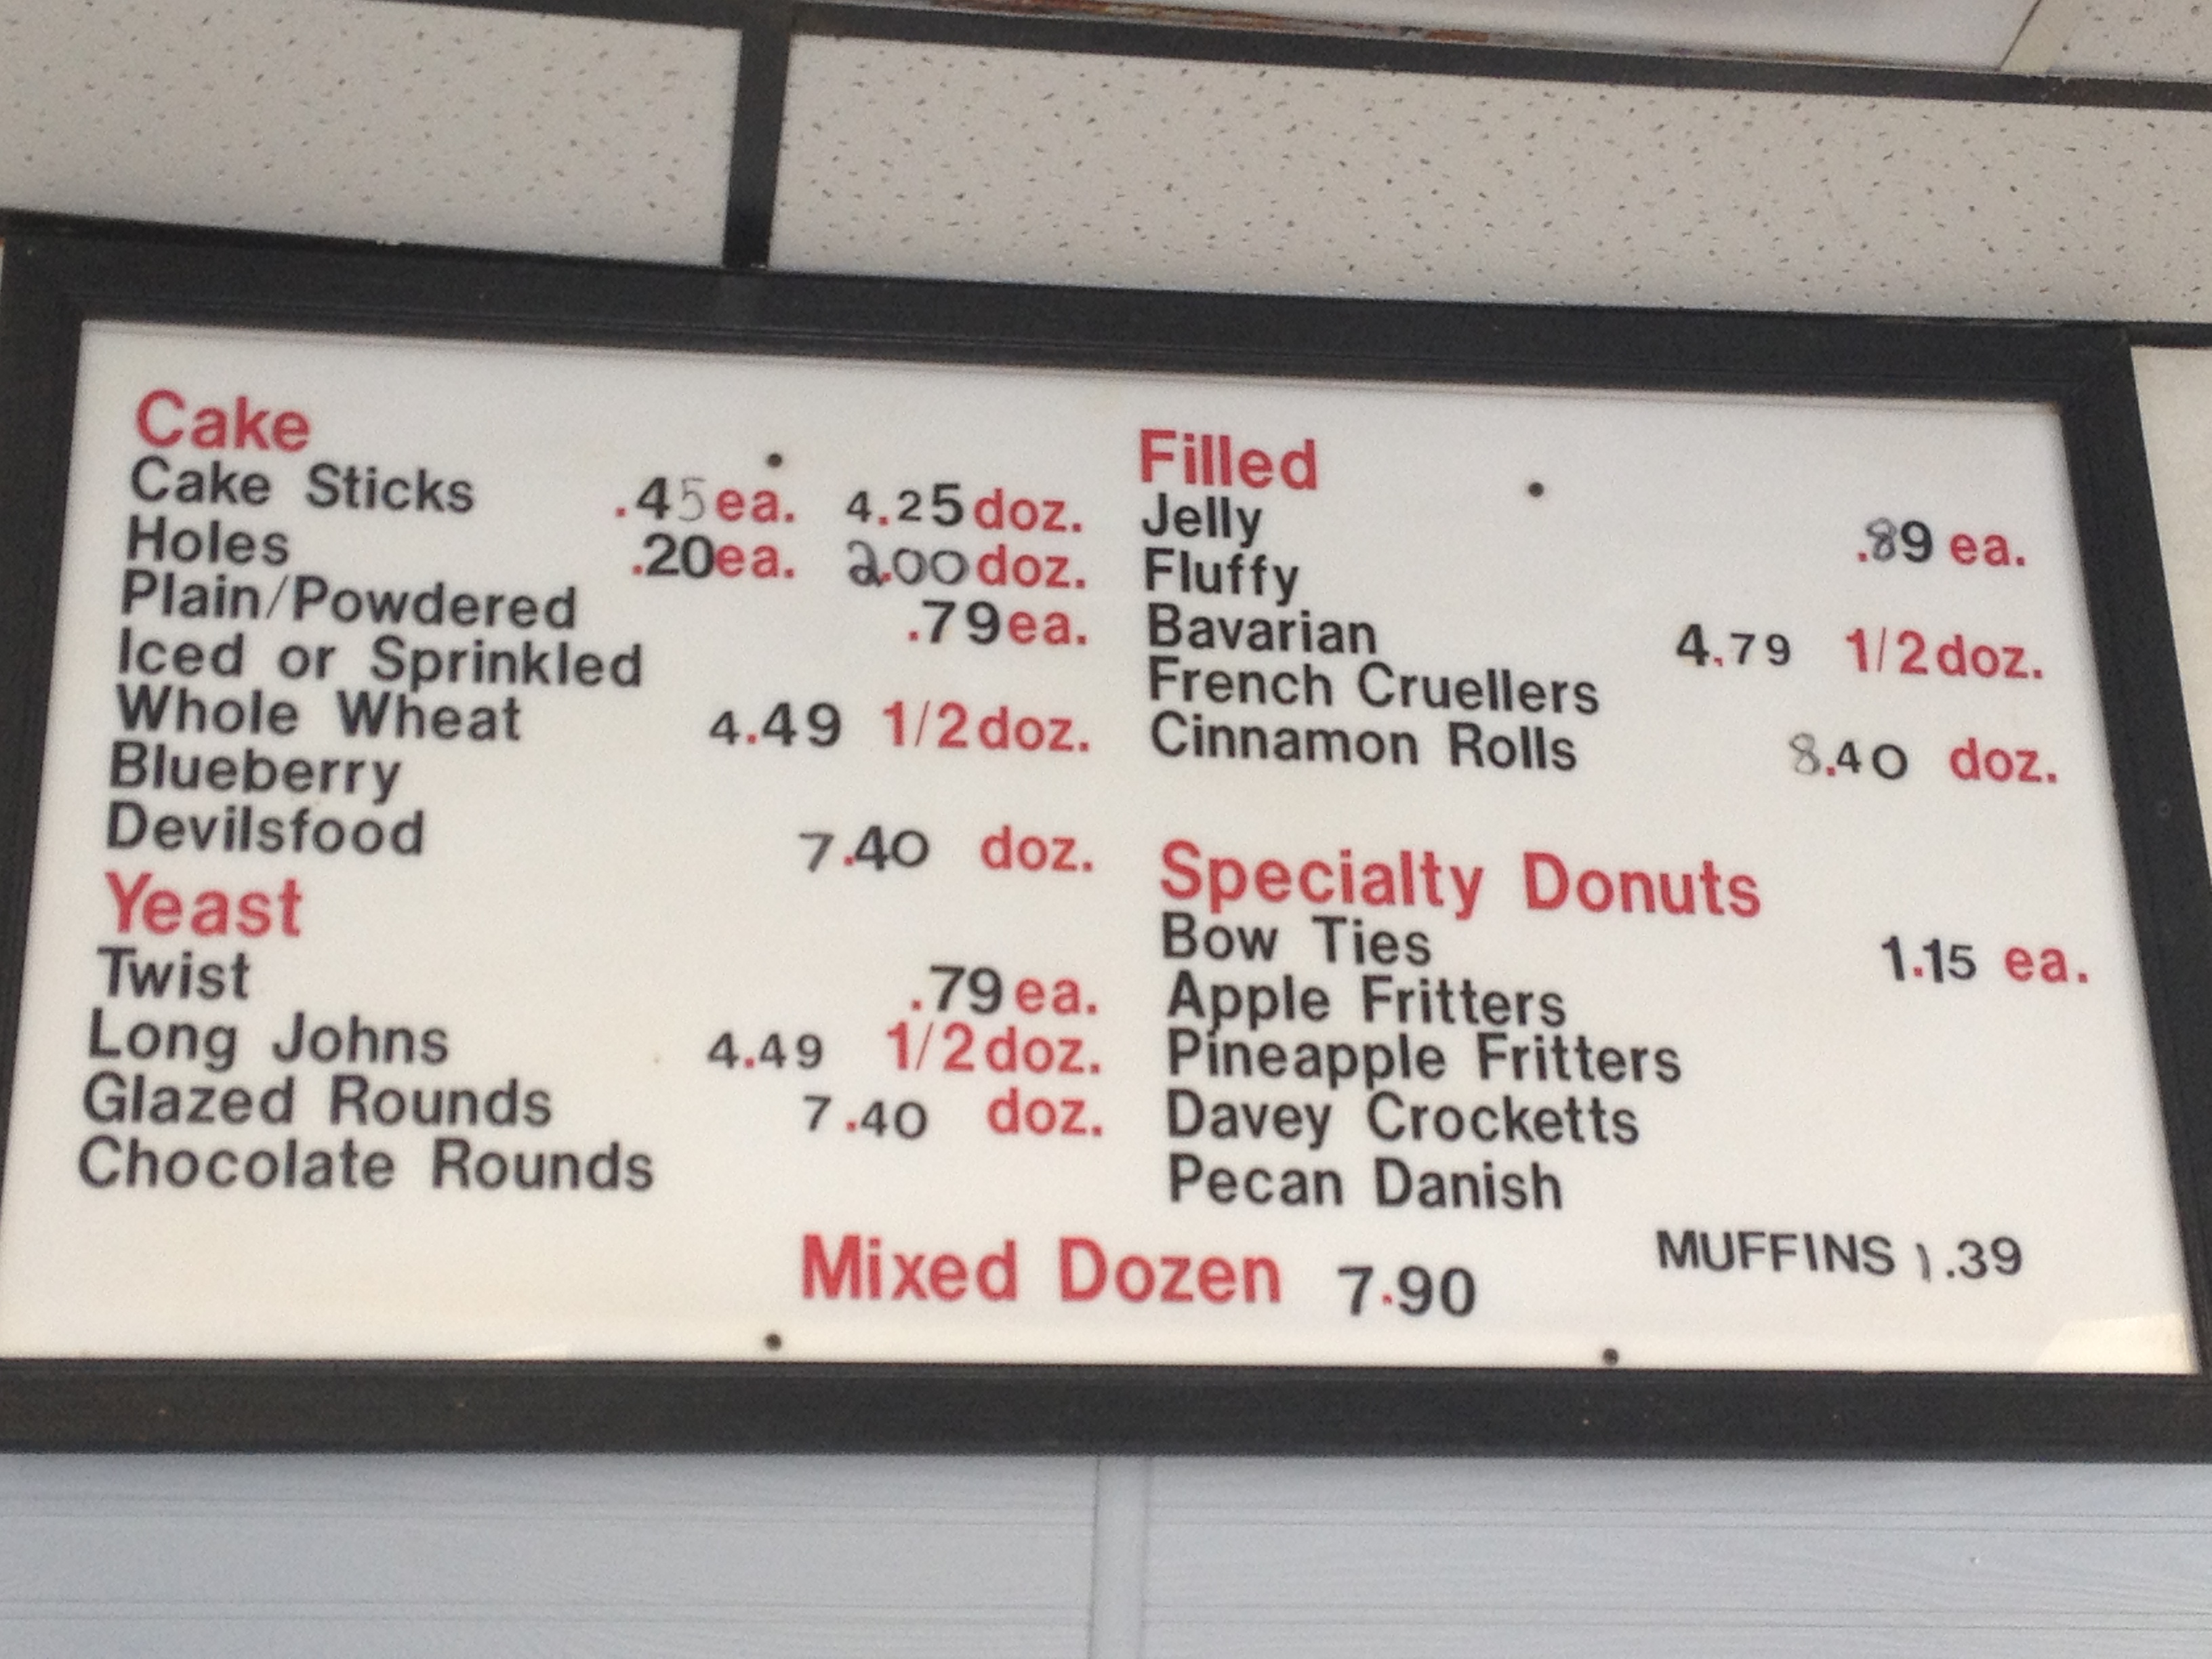 Cake
Cake Sticks .45 ea. 4.25 doz.
Holes .20 ea. 2.00 doz.
Plain/Powdered .79 ea.
Iced or Sprinkled
Whole Wheat 4.49 1/2 doz.
Blueberry
Devilsfood 7.40 doz.
Yeast
Twist .79 ea.
Long Johns 4.49 1/2 doz.
Glazed Rounds 7.40 doz.
Chocolate Rounds
Filled
Jelly .89 ea.
Fluffy
Bavarian 4.79 1/2 doz.
French Cruellers
Cinnamon Rolls 8.40 doz.
Specialty Donuts
Bow Ties 1.15 ea.
Apple Fritters
Pineapple Fritters
Davey Crocketts
Pecan Danish
MUFFINS 1.39
Mixed Dozen 7.90